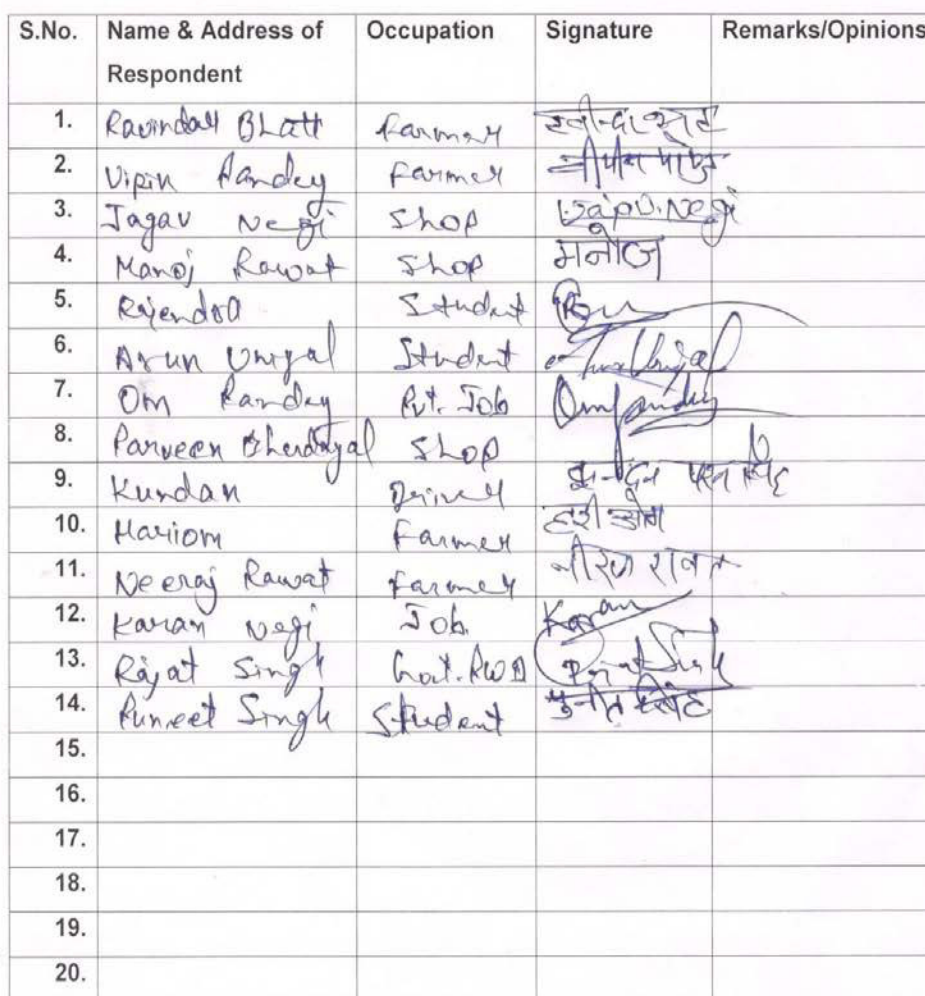 S.No. Name & Address of Respondent Occupation Signature Remarks/Opinions
1. Ravindar Bhatt Farmer
2. Vipin Pandey Farmer
3. Jagav Negi Shop Negi
4. Manoj Rawat Shop मनोज
5. Rajendra Student
6. Arun Uniyal Student Arun Uniyal
7. Om Pandey Pvt. Job Om Pandey
8. Parveen Shop
9. Kundan Driver
10. Hariom Farmer हरी ओम
11. Neeraj Rawat Farmer नीरज रावत
12. Karan Negi Job Karan
13. Rajat Singh Govt. PWD Rajat Singh
14. Puneet Singh Student पुनीत
15.
16.
17.
18.
19.
20.